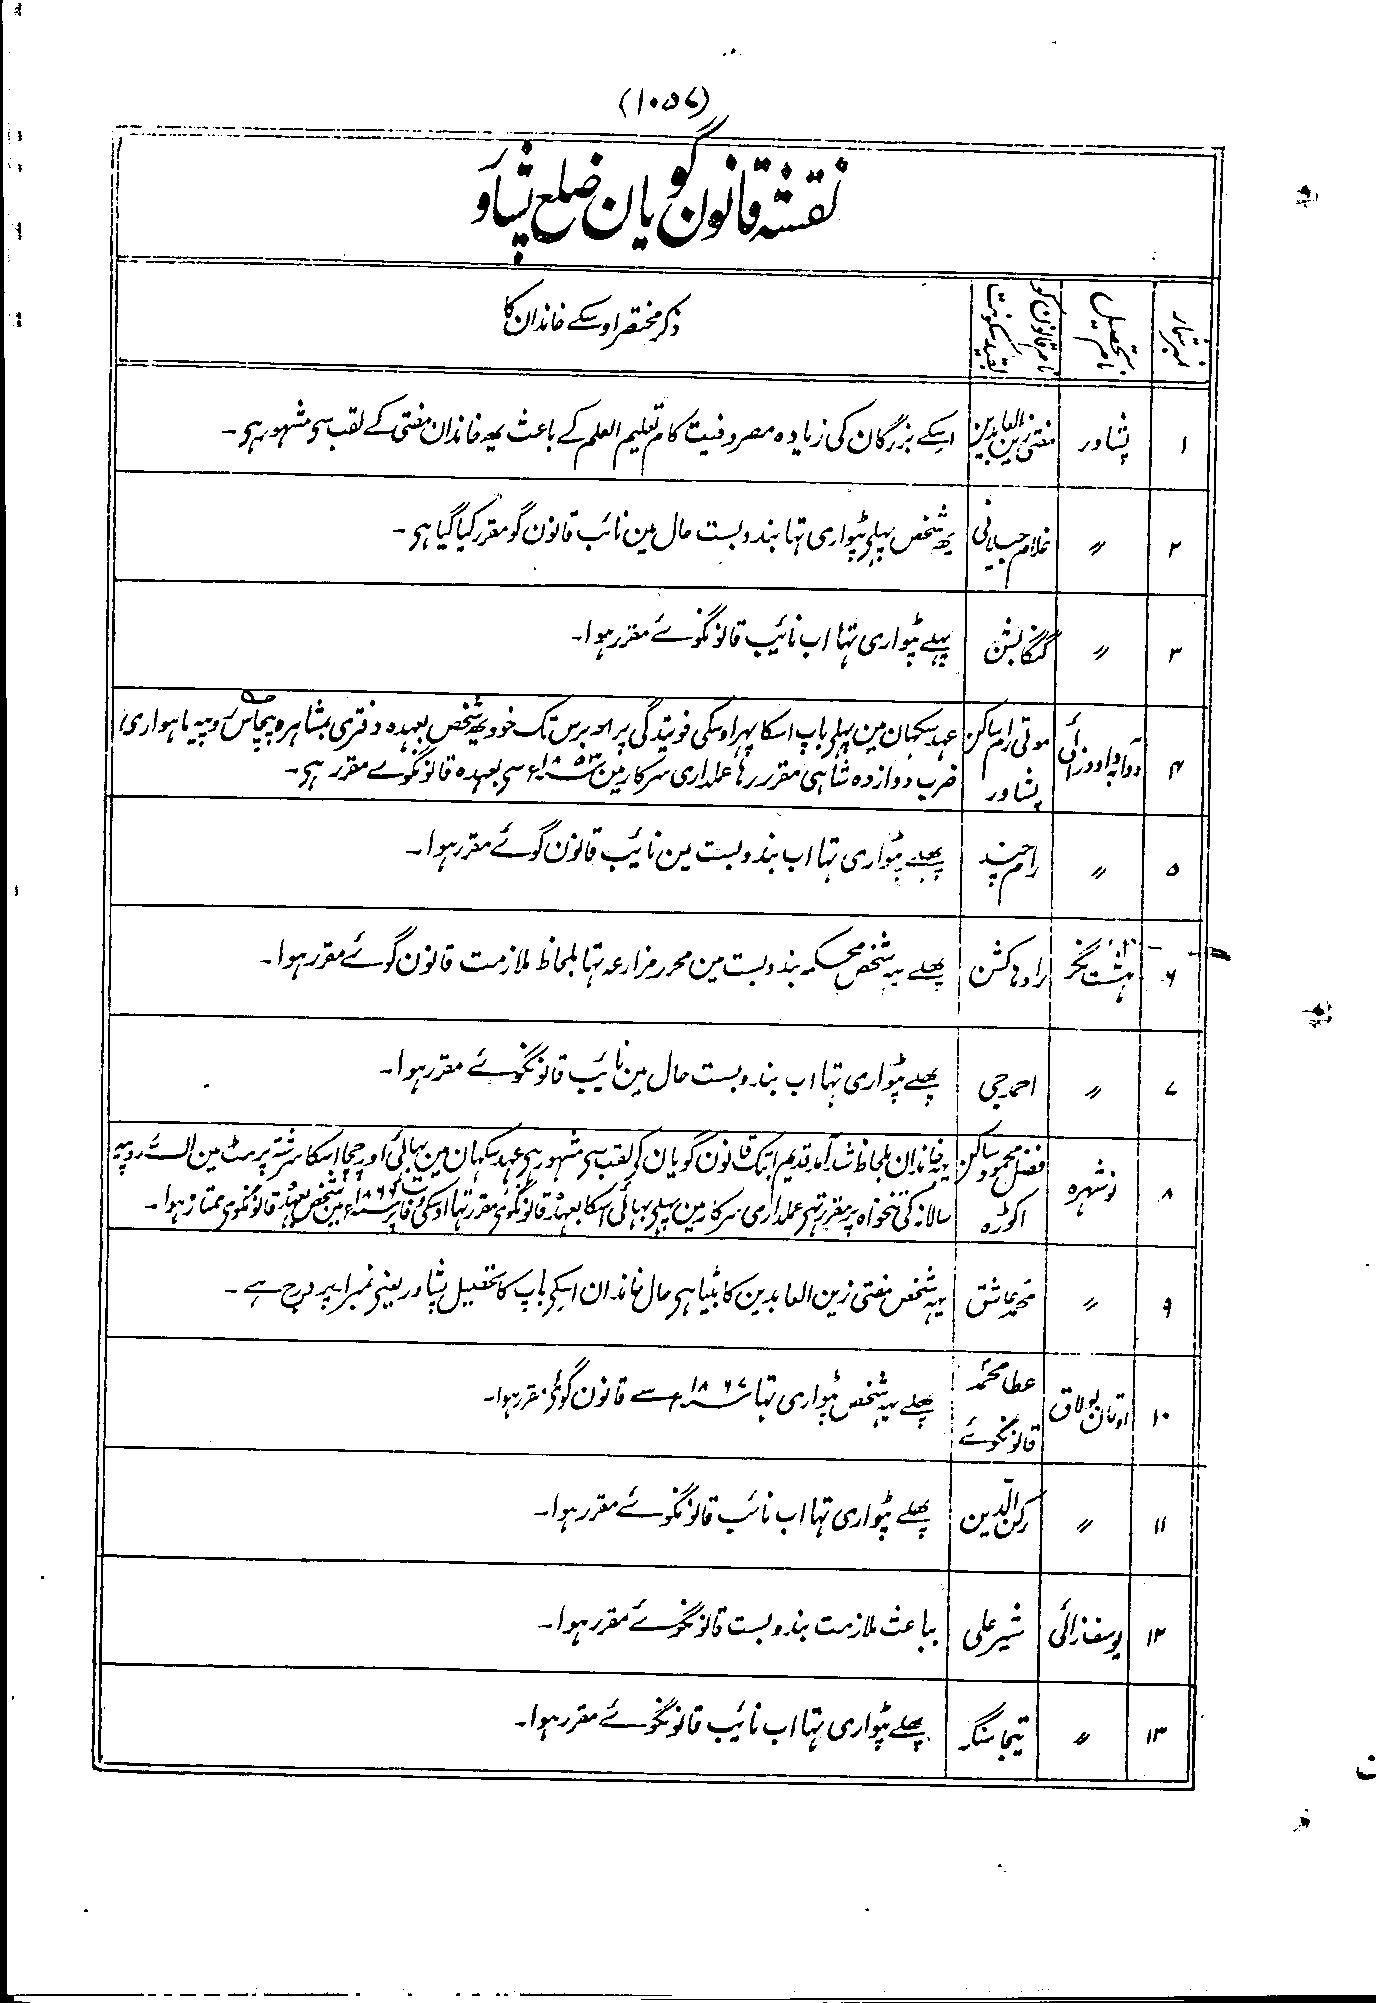 (۱۰۵۷)
نقشہ قانون گویان ضلع پشاور
نمبر شمار نام تحصیل نام قانون گو بقید سکونت ذکر مختصر اوسکے خاندان کا
۱ پشاور مفتی زین العابدین اسکے بزرگان کی زیادہ مصروفیت کام تعلیم العلم کے باعث یہہ خاندان مفتی کے لقب سی مشہور ہی۔
۲ // غلام جیلانی یہہ شخص پہلی پٹواری تہا بندوبست حال مین نائب قانون گو مقرر کیا گیا ہی۔
۳ // گنگا بشن پہلے پٹواری تہا اب نائیب قانونگوئے مقرر ہوا۔
۴ دوآبہ داودزائی موتی رام ساکن پشاور عہد سکہان مین پہلی باپ اسکا پہر اوسکی فوتیدگی پر ۱۰ برس تک خود یہہ شخص بعہدہ دفتری بمشاہرہ پچاس روپیہ ماہواری
ضرب دوازدہ شاہی مقرر رہا عملداری سرکار مین ۱۸۵۳ء سی بعہدہ قانونگوے مقرر ہی۔
۵ // رام چند پہلے پٹواری تہا اب بندوبست مین نائیب قانون گوئے مقرر ہوا۔
۶ ہشت نگر رادہا کشن پہلے یہ شخص محکمہ بندوبست مین محرر مزارعہ تہا بلحاظ ملازمت قانون گوئے مقرر ہوا۔
۷ // احمد جی پہلے پٹواری تہا اب بندوبست حال مین نائیب قانونگوئے مقرر ہوا۔
۸ نوشہرہ فضل محمود ساکن اکوڑہ یہ خاندان بلحاظ شد آمد قدیم اتبک قانون گویان کی لقب سی مشہور ہی عہد سکہان مین بہائی اور چچا اسکا سررشتہ پرمٹ مین روپیہ
سالانہ کی تنخواہ پر مقرر تہی عملداری سرکار مین پہلی بہائی اسکا بعہدہ قانونگوی مقرر تہا اوسکی وفات پر ۱۸۶۶ء مین یہ شخص بعہدہ قانونگوی ممتاز ہوا۔
۹ // محمد عاشق یہہ شخص مفتی زین العابدین کا بیٹا ہی حال خاندان اسکی باپ کا تحصیل پشاور یعنی نمبر ۱ پر درج ہے۔
۱۰ اوتمان بولاق عطا محمد قانونگوئے پہلے یہہ شخص پٹواری تہا ۱۸۶۷ء سے قانون گوئی مقرر ہوا۔
۱۱ // رکن الدین پہلے پٹواری تہا اب نائب قانونگوئے مقرر ہوا۔
۱۲ یوسفزائی شیر علی بباعث ملازمت بندوبست قانونگوئے مقرر ہوا۔
۱۳ // تیجا سنگہ پہلے پٹواری تہا اب نائیب قانونگوئے مقرر ہوا۔